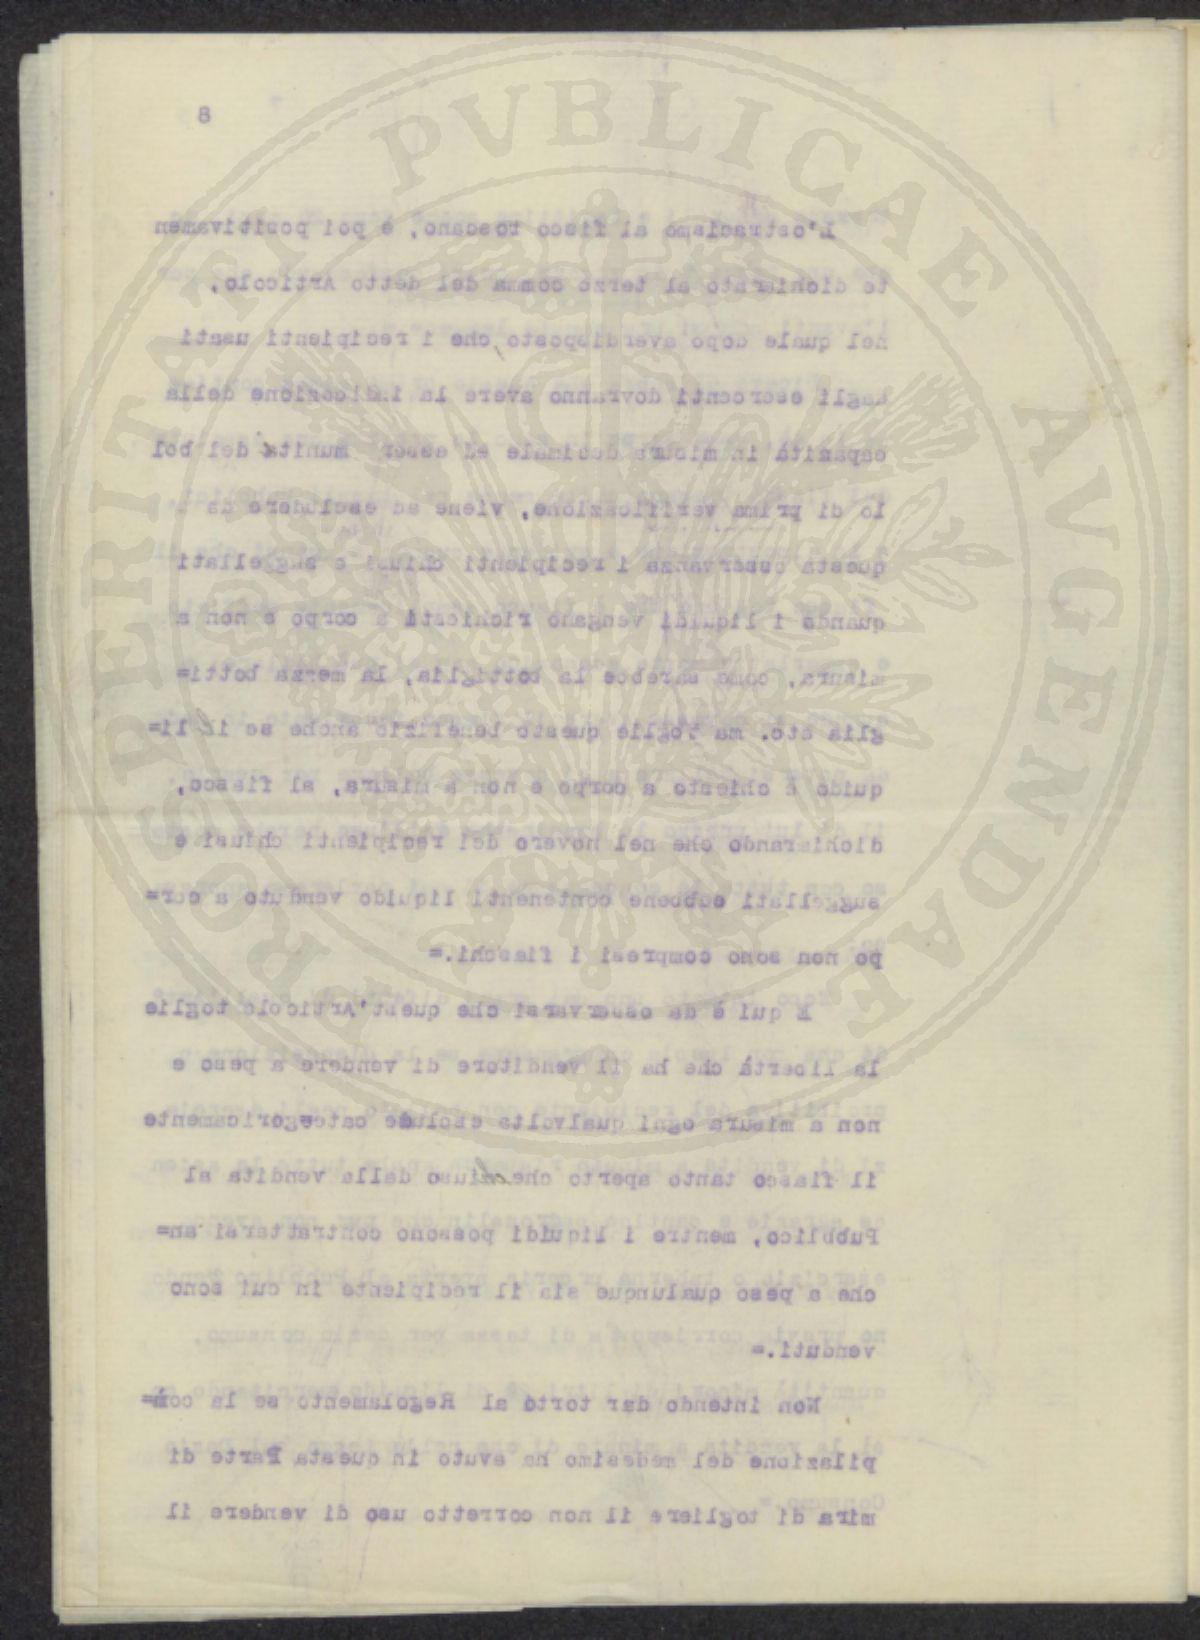 PROSPERITATI PVBLICAE AVGENDAE
8
L'ostracismo al fisco toscano, è poi positivamen
te dichiarato al terzo comma del detto Articolo,
nel quale dopo averdisposto, che i recipienti usati
dagli esercenti dovranno avere la indicazione della
capacità in misura decimale ed esser munita del bol
lo di prima verificazione, viene ad escludere da
questa osservanza i recipienti chiusi e suggellati
quando i liquidi vengano richiesti a corpo e non a
misura, come sarebbe la bottiglia, la mezza botti=
glia etc. ma toglie questo benefizio anche se il li=
quido è chiesto a corpo e non a misura, al fiasco,
dichiarando che nel novero dei recipienti chiusi e
suggellati sebbene contenenti liquido venduto a cor=
po non sono compresi i fiaschi.=
E qui è da osservarsi che quest'Articolo toglie
la libertà che ha il venditore di vendere a peso e
non a misura ogni qualvolta esclude categoricamente
il fiasco tanto aperto che chiuso dalla vendita al
Pubblico, mentre i liquidi possono contrattarsi an=
che a peso qualunque sia il recipiente in cui sono
venduti.=
Non intendo dar torto al Regolamento se la com=
pilazione del medesimo ha avuto in questa Parte di
mira di togliere il non corretto uso di vendere il